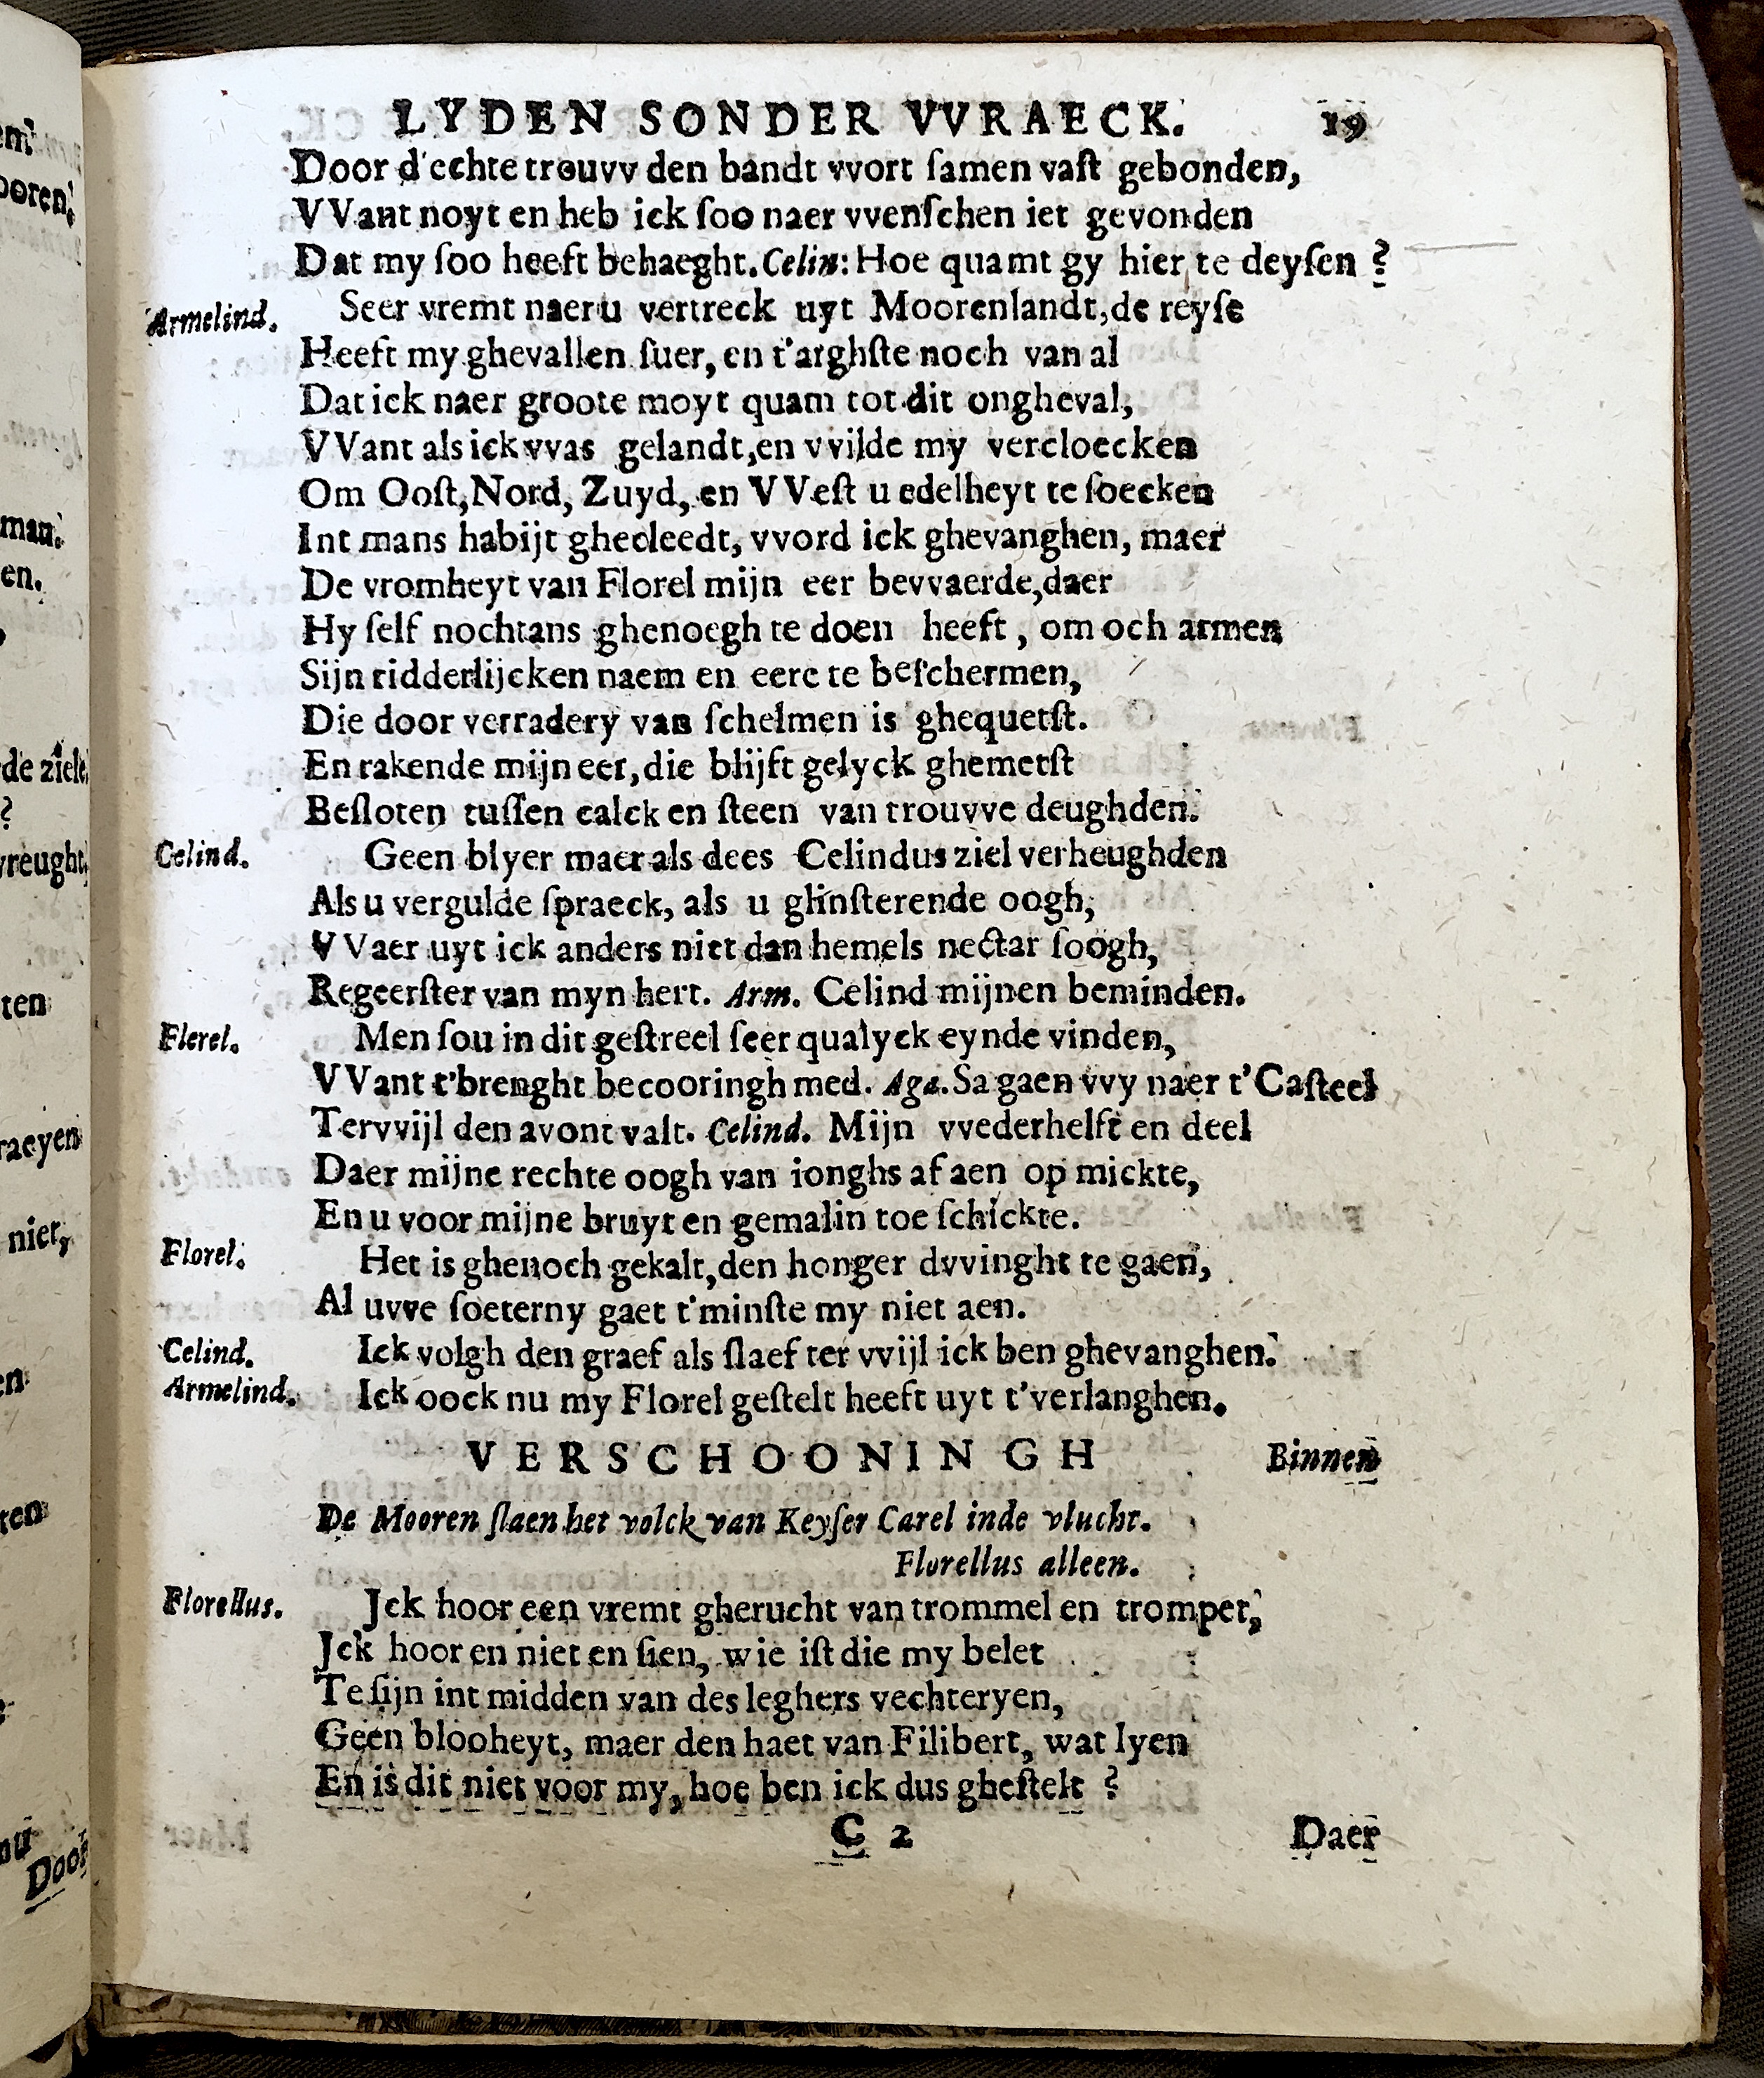 LYDEN SONDER VVRAECK. 19
Door d'echte trouvv den bandt vvort ſamen vaſt gebonden,
VVant noyt en heb ick ſoo naer vvenſchen iet gevonden
Dat my ſoo heeft behaeght. Celin: Hoe quamt gy hier te deyſen ?
Armelind. Seer vremt naer u vertreck uyt Moorenlandt, de reyſe
Heeft my ghevallen ſuer, en t'arghſte noch van al
Dat ick naer groote moyt quam tot dit ongheval,
VVant als ick vvas gelandt, en vvilde my vercloecken
Om Ooſt, Nord, Zuyd, en VVeſt u edelheyt te ſoecken
Int mans habijt ghecleedt, vvord ick ghevanghen, maer
De vromheyt van Florel mijn eer bevvaerde, daer
Hy ſelf nochtans ghenoegh te doen heeft, om och armen
Sijn ridderlijcken naem en eere te beſchermen,
Die door verradery van ſchelmen is ghequetſt.
En rakende mijn eer, die blijft gelyck ghemetſt
Beſloten tuſſen calck en ſteen van trouvve deughden.
Celind. Geen blyer maer als dees Celindus ziel verheughden
Als u vergulde ſpraeck, als u glinſterende oogh,
VVaer uyt ick anders niet dan hemels nectar ſoogh,
Regeerſter van myn hert. Arm. Celind mijnen beminden.
Flerel. Men ſou in dit geſtreel ſeer qualyck eynde vinden,
VVant t'brenght becooringh med. Aga. Sa gaen vvy naer t'Caſteel
Tervvijl den avont valt. Celind. Mijn vvederhelft en deel
Daer mijne rechte oogh van ionghs af aen op mickte,
En u voor mijne bruyt en gemalin toe ſchickte.
Florel. Het is ghenoch gekalt, den honger dvvinght te gaen,
Al uvve ſoeterny gaet t'minſte my niet aen.
Celind. Ick volgh den graef als ſlaef ter vvijl ick ben ghevanghen.
Armelind. Ick oock nu my Florel geſtelt heeft uyt t'verlanghen.
VERSCHOONINGH Binnen
De Mooren ſlaen het volck van Keyſer Carel inde vlucht.
Florellus alleen.
Florellus. Jck hoor een vremt gherucht van trommel en trompet,
Jck hoor en niet en ſien, wie iſt die my belet
Te ſijn int midden van des leghers vechteryen,
Geen blooheyt, maer den haet van Filibert, wat lyen
En is dit niet voor my, hoe ben ick dus gheſtelt ?
C 2 Daer